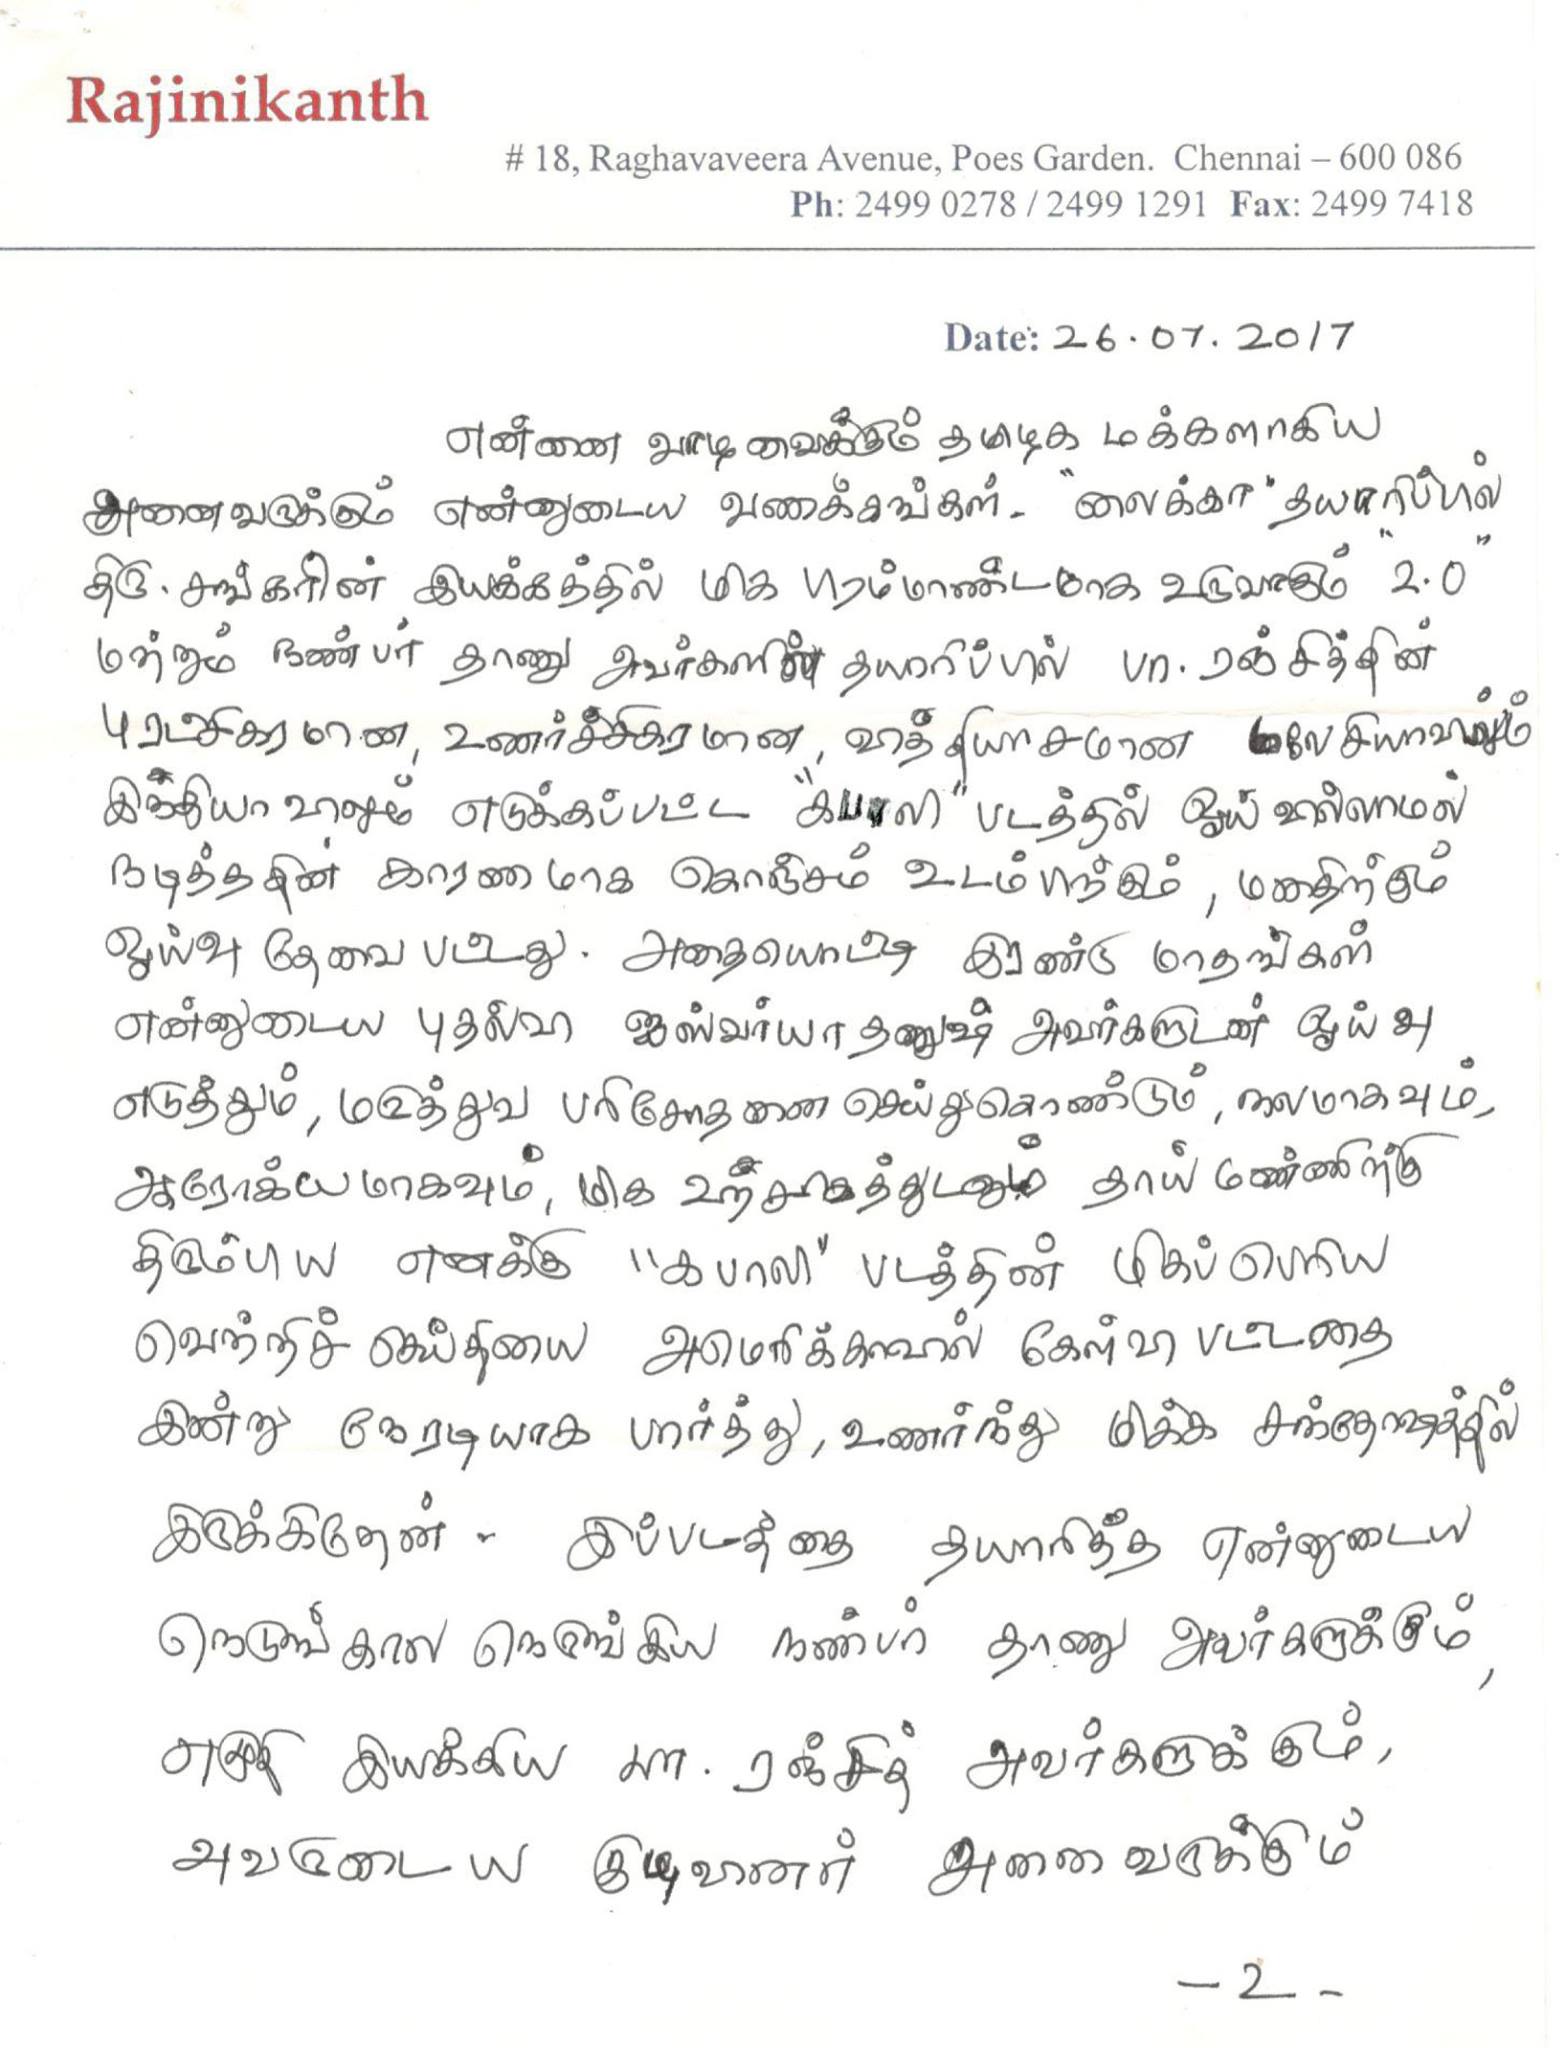 Rajinikanth
# 18, Raghavaveera Avenue, Poes Garden. Chennai – 600 086
Ph: 2499 0278 / 2499 1291 Fax: 2499 7418
Date: 26.07.2017
என்னை வாழவைக்கும் தமிழக மக்களாகிய
அனைவருக்கும் என்னுடைய வணக்கங்கள். "லைக்கா" தயாரிப்பில்
திரு. சங்கரின் இயக்கத்தில் மிக பிரம்மாண்டமாக உருவாகும் "2.0"
மற்றும் நண்பர் தாணு அவர்களின் தயாரிப்பில் பா. ரஞ்சித்தின்
புரட்சிகரமான, உணர்ச்சிகரமான, வித்தியாசமான மலேசியாவிலும்
இந்தியாவிலும் எடுக்கப்பட்ட "கபாலி" படத்தில் ஓய்வில்லாமல்
நடித்ததின் காரணமாக கொஞ்சம் உடம்பிற்கும், மனதிற்கும்
ஓய்வு தேவை பட்டது. அதையொட்டி இரண்டு மாதங்கள்
என்னுடைய புதல்வி ஐஸ்வர்யா தனுஷ் அவர்களுடன் ஓய்வு
எடுத்தும், மருத்துவ பரிசோதனை செய்துகொண்டும், நலமாகவும்,
ஆரோக்யமாகவும், மிக உற்சாகத்துடனும் தாய் மண்ணிற்கு
திரும்பிய எனக்கு "கபாலி" படத்தின் மிகப் பெரிய
வெற்றிச் செய்தியை அமெரிக்காவில் கேள்வி பட்டதை
இன்று நேரடியாக பார்த்து, உணர்ந்து மிக்க சந்தோஷத்தில்
இருக்கிறேன். இப்படத்தை தயாரித்த என்னுடைய
நெடுங்கால நெருங்கிய நண்பர் தாணு அவர்களுக்கும்,
எழுதி இயக்கிய பா. ரஞ்சித் அவர்களுக்கும்,
அவருடைய குழுவினர் அனைவருக்கும்
-2-